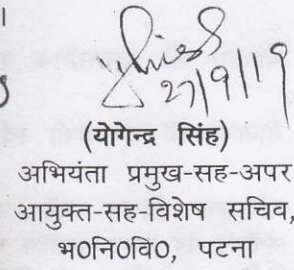 27/9/19
(योगेन्द्र सिंह)
अभियंता प्रमुख-सह-अपर
आयुक्त-सह-विशेष सचिव,
भ0नि0वि0, पटना